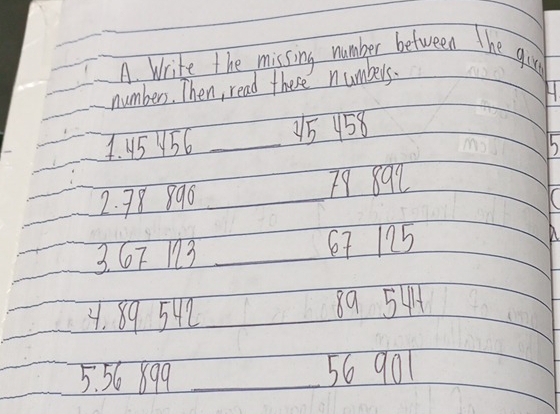 A. Write the missing number between the
numbers. Then, read these numbers.
1. 45 456 ______ 45 458
2. 78 890 ______ 78 892
3. 67 123 ______ 67 125
4. 89 542 ______ 89 544
5. 56 899 ______ 56 901